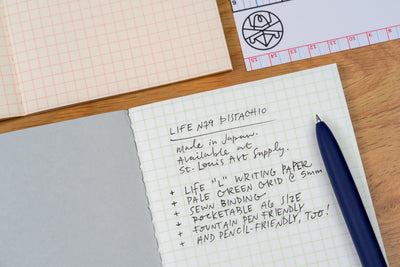 LIFE N79 PISTACHIO
Made in Japan.
Available at
St. Louis Art Supply.
+ LIFE "L" WRITING PAPER
+ PALE GREEN GRID @ 5mm
+ SEWN BINDING
+ POCKETABLE A6 SIZE
+ FOUNTAIN PEN FRIENDLY
+ AND PENCIL-FRIENDLY, TOO!